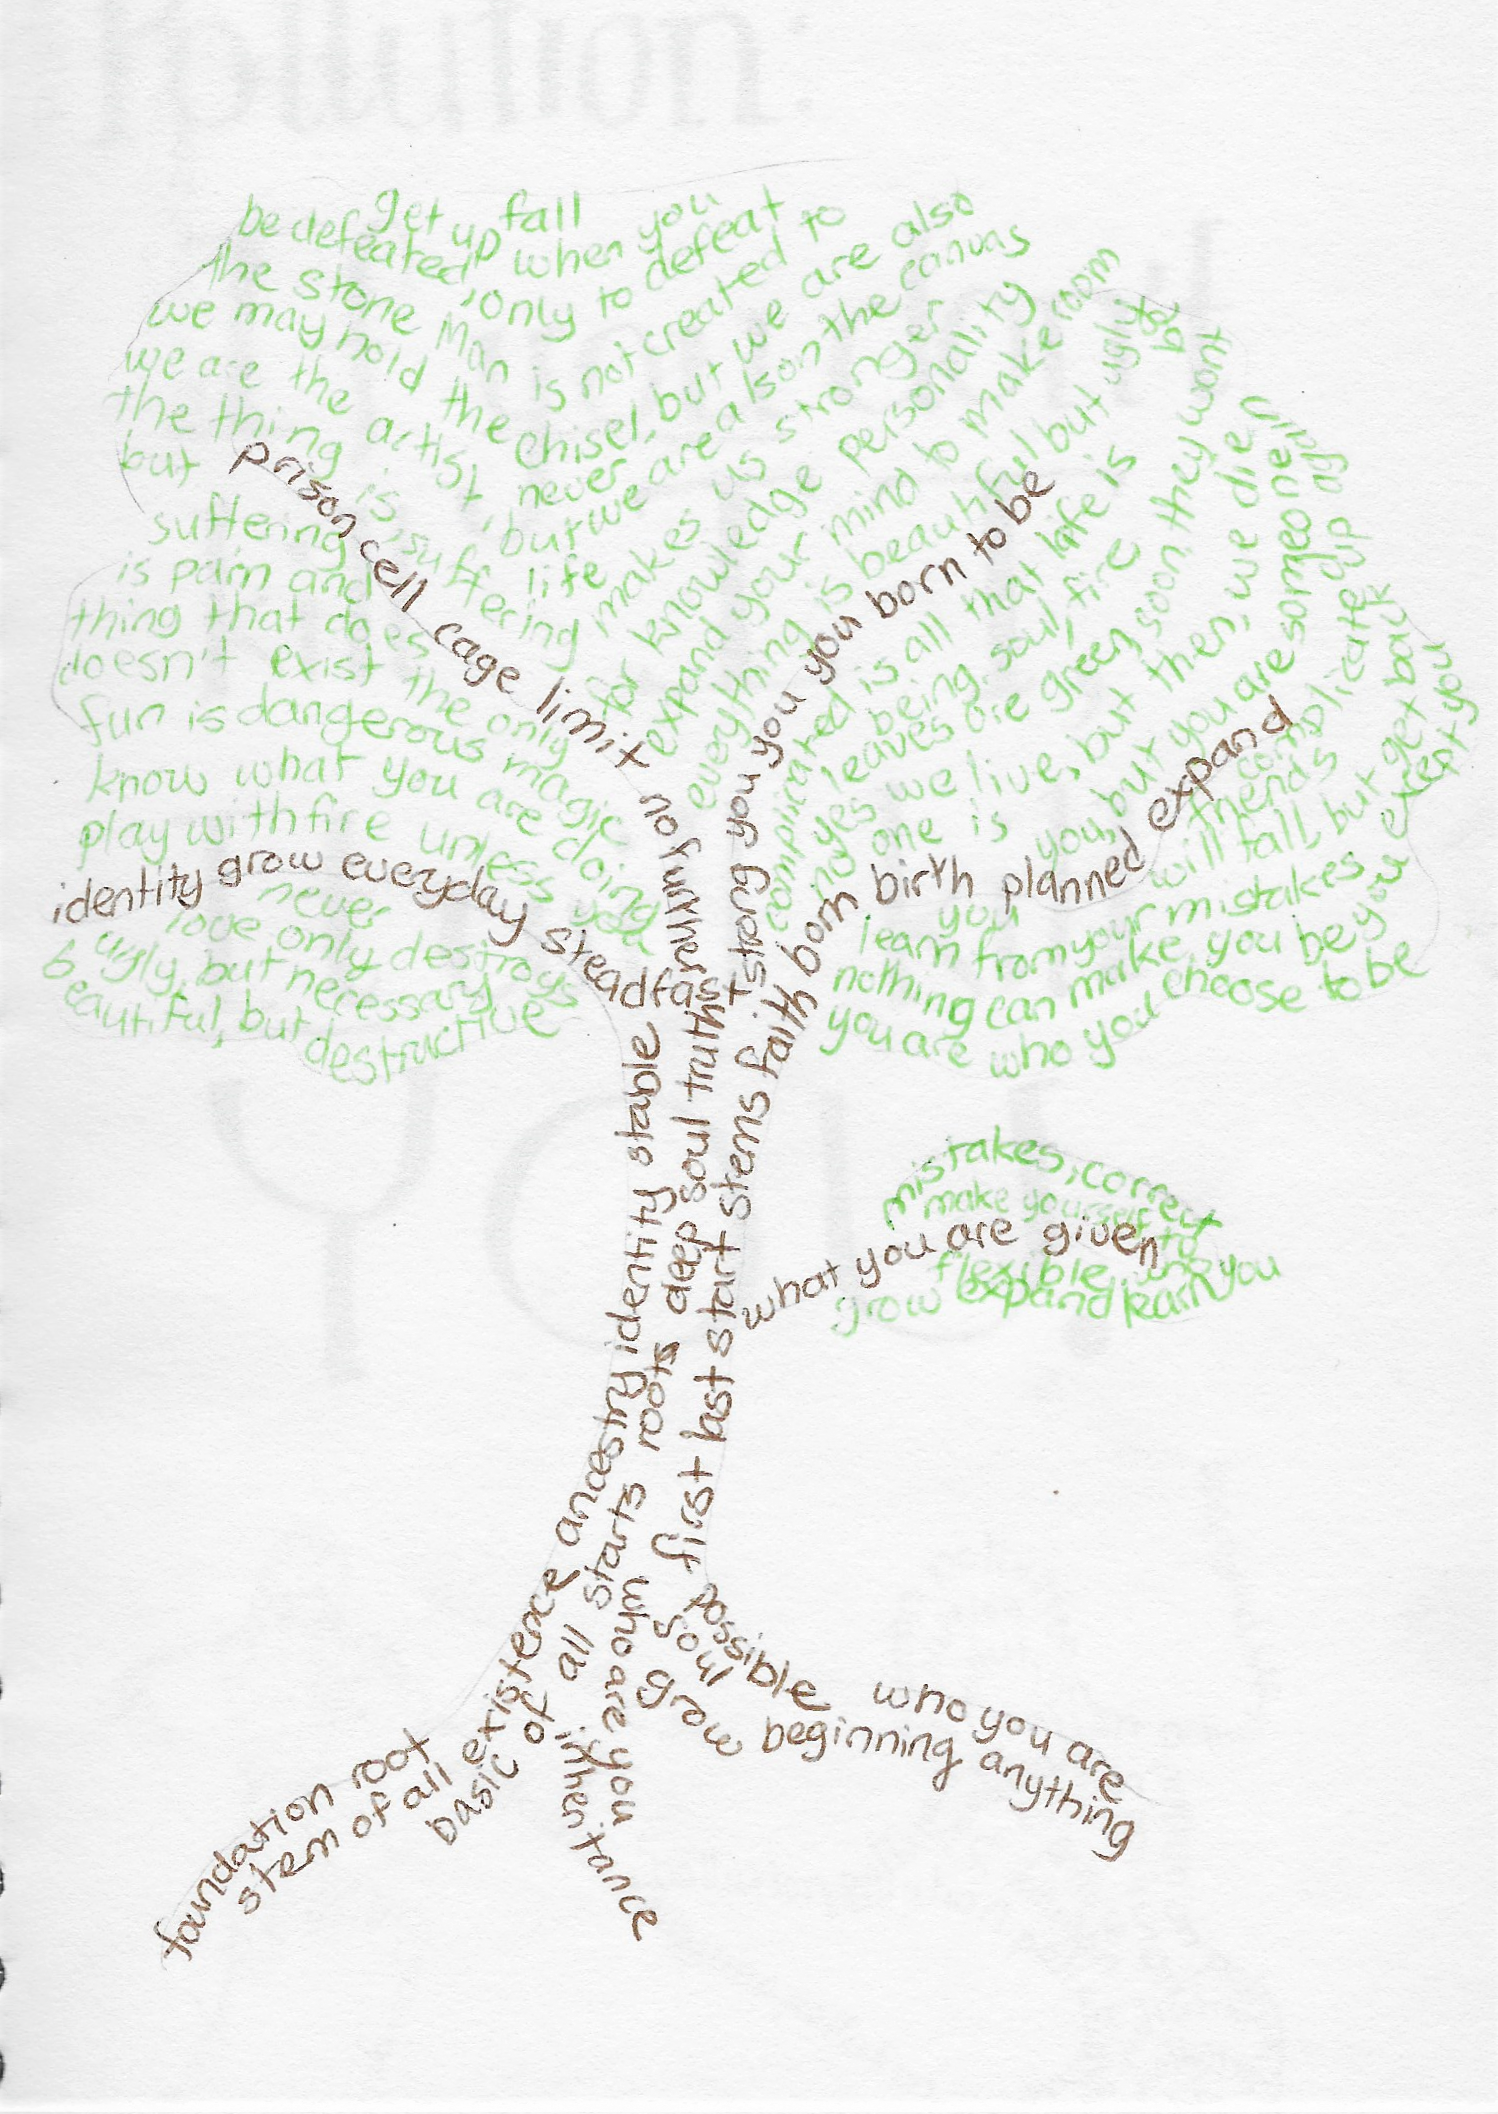 Pollution:
get up fall
be defeated, only when you
the stone Man to defeat
we may hold is not created to
we are the the chisel, but we are also
the thing artist, never
but is, but we are also on the canvas
suffering suffering makes us stronger
is pain and life
thing that does
doesn't exist the only
fun is dangerous magic
know what you are doing
play with fire unless you
never
love only destroys
ugly, but necessary
beautiful, but destructive
for knowledge personality
expand your mind to make room
everything is beautiful but ugly
is all that life is
being, soul, fire
leaves are green soon, they wont
yes we live, but then, we die
no one is you, but you are someone
complicated
friends
you will fall, but get back up again
learn from your mistakes
nothing can make, you be you except you
you are who you choose to be
prison cell cage limit no further
identity grow everyday steadfast
strong you you you born to be
stems faith born birth planned expand
mistakes, correct
make yourself
what you are given
to
flexible
grow expand learn you
foundation root
stem of all existence ancestry identity stable
basic of all starts roots deep soul truth
first last start
who are you
inheritance
possible who you are
soul
grow beginning anything
you